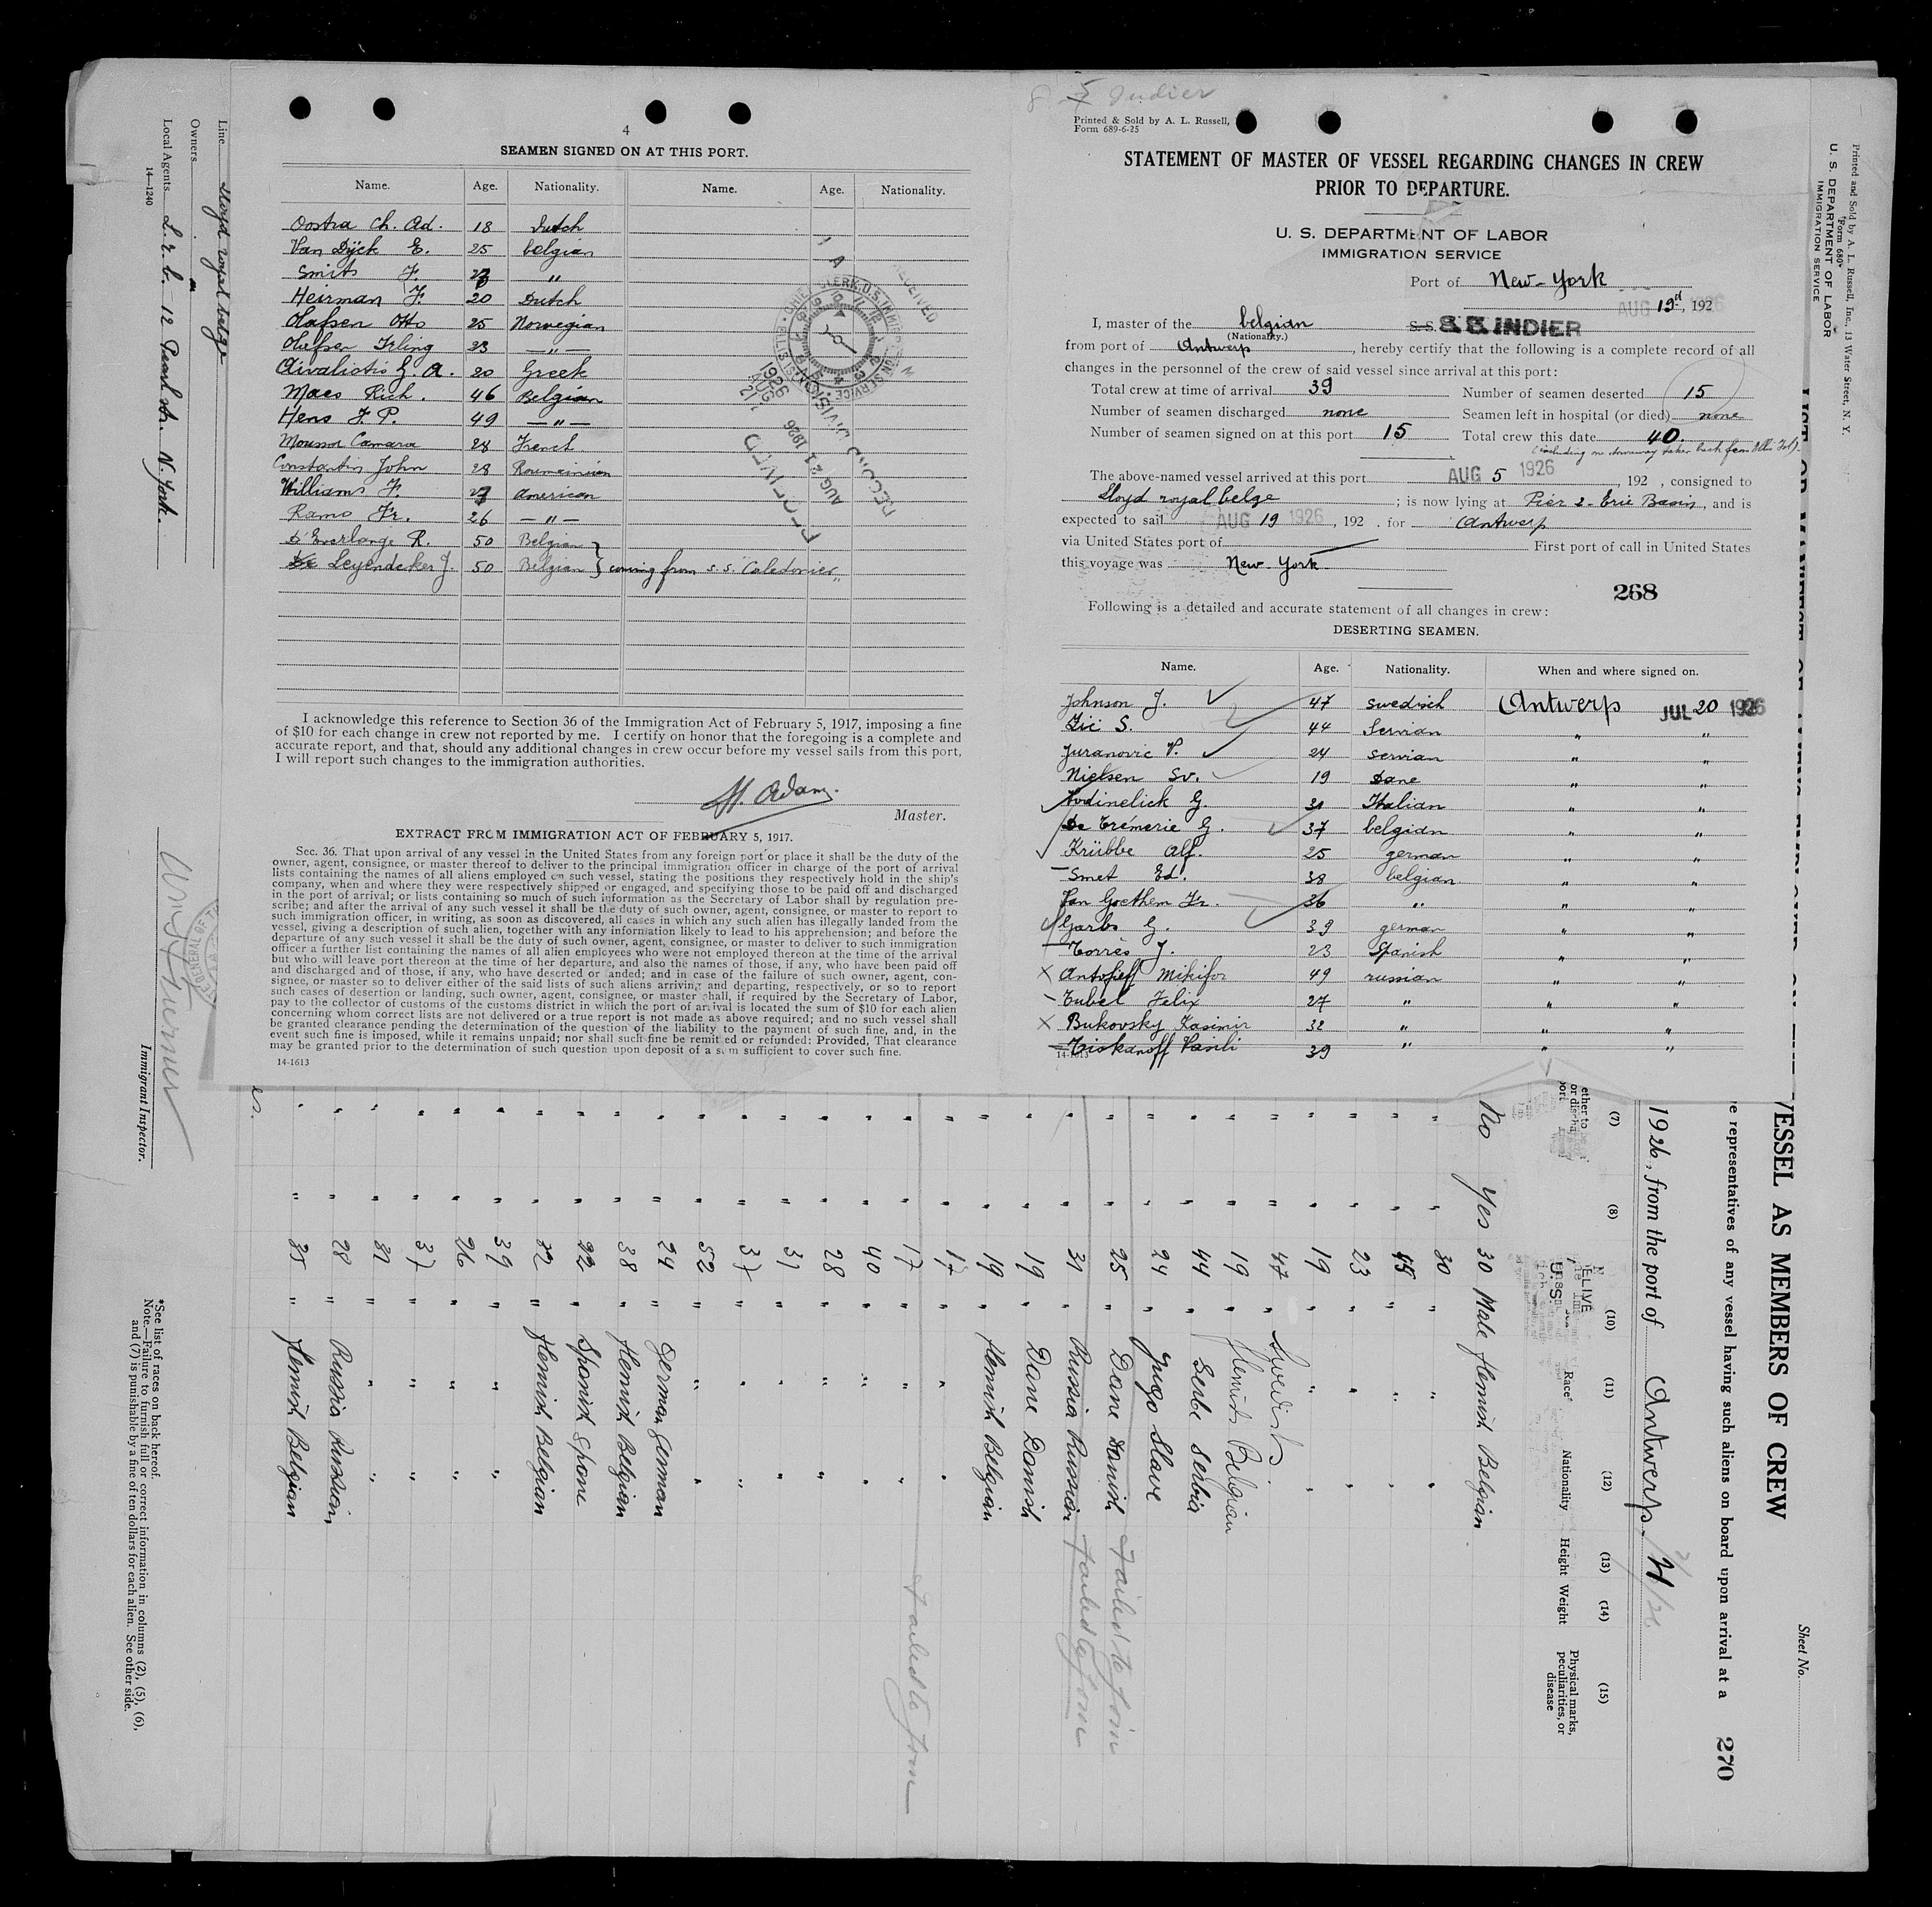 4
SEAMEN SIGNED ON AT THIS PORT.
Name. Age. Nationality. Name. Age. Nationality.
Oostra Ch. Ad. 18 Dutch
Van Dijck E. 25 belgian
Smits F. "
Heirman F. 20 Dutch
Olafsen Otto 25 Norwegian
Olefsen Erling 23 — " —
Aivaliotis G. A. 20 Greek
Maes Rich. 46 Belgian
Hens F. P. 49 — " —
Moussa Camara 28 French
Constantin John 28 Roumeinian
Williams F. American
Ramo Fr. 26 — " —
D'Everlange R. 50 Belgian
Leyendecker J. 50 Belgian } coming from s. s. Caledonier"
I acknowledge this reference to Section 36 of the Immigration Act of February 5, 1917, imposing a fine
of $10 for each change in crew not reported by me. I certify on honor that the foregoing is a complete and
accurate report, and that, should any additional changes in crew occur before my vessel sails from this port,
I will report such changes to the immigration authorities.
H. Adam.
Master.
EXTRACT FROM IMMIGRATION ACT OF FEBRUARY 5, 1917.
Sec. 36. That upon arrival of any vessel in the United States from any foreign port or place it shall be the duty of the
owner, agent, consignee, or master thereof to deliver to the principal immigration officer in charge of the port of arrival
lists containing the names of all aliens employed on such vessel, stating the positions they respectively hold in the ship's
company, when and where they were respectively shipped or engaged, and specifying those to be paid off and discharged
in the port of arrival; or lists containing so much of such information as the Secretary of Labor shall by regulation pre-
scribe; and after the arrival of any such vessel it shall be the duty of such owner, agent, consignee, or master to report to
such immigration officer, in writing, as soon as discovered, all cases in which any such alien has illegally landed from the
vessel, giving a description of such alien, together with any information likely to lead to his apprehension; and before the
departure of any such vessel it shall be the duty of such owner, agent, consignee, or master to deliver to such immigration
officer a further list containing the names of all alien employees who were not employed thereon at the time of the arrival
but who will leave port thereon at the time of her departure, and also the names of those, if any, who have been paid off
and discharged and of those, if any, who have deserted or landed; and in case of the failure of such owner, agent, con-
signee, or master so to deliver either of the said lists of such aliens arriving and departing, respectively, or so to report
such cases of desertion or landing, such owner, agent, consignee, or master shall, if required by the Secretary of Labor,
pay to the collector of customs of the customs district in which the port of arrival is located the sum of $10 for each alien
concerning whom correct lists are not delivered or a true report is not made as above required; and no such vessel shall
be granted clearance pending the determination of the question of the liability to the payment of such fine, and, in the
event such fine is imposed, while it remains unpaid; nor shall such fine be remitted or refunded: Provided, That clearance
may be granted prior to the determination of such question upon deposit of a sum sufficient to cover such fine.
14-1613
Indier
Printed & Sold by A. L. Russell,
Form 689-6-25
STATEMENT OF MASTER OF VESSEL REGARDING CHANGES IN CREW
PRIOR TO DEPARTURE.
U. S. DEPARTMENT OF LABOR
IMMIGRATION SERVICE
Port of New-York
AUG 19d, 1926
I, master of the belgian S.S. S.S. INDIER
(Nationality.)
from port of Antwerp, hereby certify that the following is a complete record of all
changes in the personnel of the crew of said vessel since arrival at this port:
Total crew at time of arrival 39 Number of seamen deserted 15
Number of seamen discharged none Seamen left in hospital (or died) none
Number of seamen signed on at this port 15 Total crew this date 40.
(including one stowaway taken back from Ellis Isl).
The above-named vessel arrived at this port AUG 5 1926, 192 , consigned to
Lloyd royal belge ; is now lying at Pier 2- Erie Basin, and is
expected to sail AUG 19 1926, 192 . for Antwerp
via United States port of First port of call in United States
this voyage was New-York
268
Following is a detailed and accurate statement of all changes in crew:
DESERTING SEAMEN.
Name. Age. Nationality. When and where signed on.
Johnson J. 47 swedisch Antwerp JUL 20 1926
Zic S. 44 Servian " "
Juranovic V. 24 servian " "
Nielsen Sv. 19 Dane " "
Vodinelick G. 31 Italian " "
De Trémerie G. 37 belgian " "
Krübbe Alf. 25 german " "
Smet Ed. 38 belgian " "
Van Goethem Fr. 26 " " "
Garbs G. 39 german " "
Torrès J. 23 Spanish " "
Antofieff Mikifor 49 russian " "
Tubel Felix 27 " " "
Bukovsky Kasimir 32 " " "
Tiskanoff Vasili 39 " " "
14-1613
Line Lloyd royal belge
Owners "
Local Agents L. r. b. - 12 Pearl str. N. York.
14—1240
Immigrant Inspector.
*See list of races on back hereof.
Note.—Failure to furnish full or correct information in columns (2), (5), (6),
and (7) is punishable by a fine of ten dollars for each alien. See other side.
Printed and Sold by A. L. Russell, Inc., 13 Water Street, N. Y.
"Form 680"
U. S. DEPARTMENT OF LABOR
IMMIGRATION SERVICE
Sheet No.
VESSEL AS MEMBERS OF CREW
e representatives of any vessel having such aliens on board upon arrival at a
270
1926, from the port of Antwerp.
(7) (8) (10) (11) (12) (13) (14) (15)
Race* Nationality Height Weight Physical marks, peculiarities, or disease
No Yes 30 Male flemish Belgian
" " 30 " " "
" " 45 " " "
" " 23 " " "
" " 19 " " "
" " 47 " Swedish
" " 19 " flemish Belgian
" " 44 " Serbe Serbia
" " 24 " Jugo Slave
" " 25 " Dane Danish failed to join
" " 31 " Russia Russian failed to join
" " 19 " Dane Danish
" " 19 " flemish Belgian
" " 17 " " "
" " 17 " " " failed to join
" " 40 " " "
" " 28 " " "
" " 31 " " "
" " 37 " " "
" " 52 " " "
" " 24 " German German
" " 38 " flemish Belgian
" " 22 " Spanish Spane
" " 32 " flemish Belgian
" " 39 " " "
" " 26 " " "
" " 37 " " "
" " 31 " " "
" " 28 " Russia Russian
" " 35 " flemish Belgian